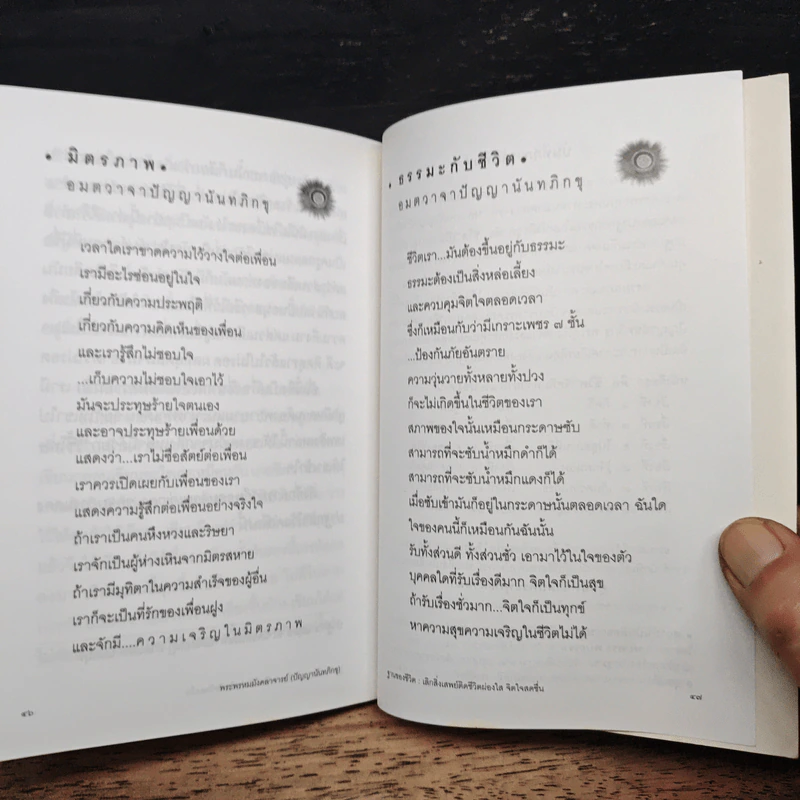 • มิตรภาพ •
อมตวาจาปัญญานันทภิกขุ
เวลาใดเราขาดความไว้วางใจต่อเพื่อน
เรามีอะไรซ่อนอยู่ในใจ
เกี่ยวกับความประพฤติ
เกี่ยวกับความคิดเห็นของเพื่อน
และเรารู้สึกไม่ชอบใจ
...เก็บความไม่ชอบใจเอาไว้
มันจะประทุษร้ายใจตนเอง
และอาจประทุษร้ายเพื่อนด้วย
แสดงว่า...เราไม่ซื่อสัตย์ต่อเพื่อน
เราควรเปิดเผยกับเพื่อนของเรา
แสดงความรู้สึกต่อเพื่อนอย่างจริงใจ
ถ้าเราเป็นคนหึงหวงและริษยา
เราจักเป็นผู้ห่างเหินจากมิตรสหาย
ถ้าเรามีมุทิตาในความสำเร็จของผู้อื่น
เราก็จะเป็นที่รักของเพื่อนฝูง
และจักมี....ความเจริญในมิตรภาพ
พระพรหมมังคลาจารย์ (ปัญญานันทภิกขุ)
๔๖
• ธรรมะกับชีวิต •
อมตวาจาปัญญานันทภิกขุ
ชีวิตเรา...มันต้องขึ้นอยู่กับธรรมะ
ธรรมะต้องเป็นสิ่งหล่อเลี้ยง
และควบคุมจิตใจตลอดเวลา
ซึ่งก็เหมือนกับว่ามีเกราะเพชร ๗ ชั้น
...ป้องกันภัยอันตราย
ความวุ่นวายทั้งหลายทั้งปวง
ก็จะไม่เกิดขึ้นในชีวิตของเรา
สภาพของใจนั้นเหมือนกระดาษซับ
สามารถที่จะซับน้ำหมึกดำก็ได้
สามารถที่จะซับน้ำหมึกแดงก็ได้
เมื่อซับเข้ามันก็อยู่ในกระดาษนั้นตลอดเวลา ฉันใด
ใจของคนนี้ก็เหมือนกันฉันนั้น
รับทั้งส่วนดี ทั้งส่วนชั่ว เอามาไว้ในใจของตัว
บุคคลใดที่รับเรื่องดีมาก จิตใจก็เป็นสุข
ถ้ารับเรื่องชั่วมาก...จิตใจก็เป็นทุกข์
หาความสุขความเจริญในชีวิตไม่ได้
ฐานของชีวิต : เลิกสิ่งเสพย์ติดชีวิตผ่องใส จิตใจสดชื่น
๔๗